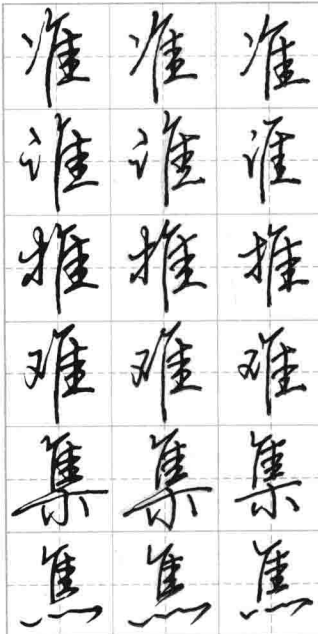 准准准
谁谁谁
推推推
难难难
集集集
焦焦焦